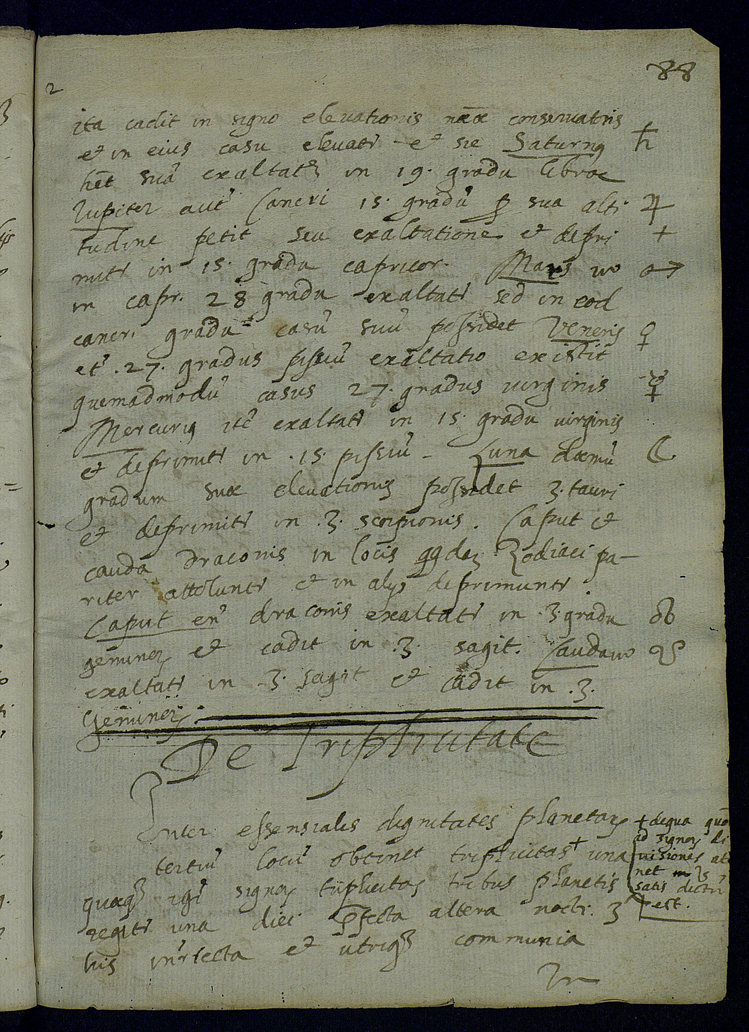 2
88
ita cadit in signo elevationis nææ conservatris
et in eius casu elevatr et sie Saturnq ♄
hēt suā exaltatē in 19. gradu librae
Jupiter aut̄ Cancri 15. gradū p sua alti ♃
tudine petit seu exaltatione et depri +
mitr in 15. gradu capricor. Mars uo ♂
in capr. 28 gradu exaltatr sed in eod
cancr. gradu casū suū possidet Veneris ♀
et .27. gradus pisciū exaltatio existit
quemadmodū casus 27 gradus virginis ☿
Mercuriq itē exaltatr in 15. gradu virginis
et deprimitr in .15. pisciū - Luna demū ☾
gradum suæ elevationis possidet 3. tauri
et deprimitr in .3. scorpionis. Caput et
cauda Draconis in locis Zodiaci pa-
riter attoluntr et in alys deprimuntr.
Caput en̄ draconis exaltatr in .3 gradu ☊
geminor et cadit in .3 sagit. Cauda uo ☋
exaltatr in .3. sagit et cadit in .3.
Geminor.
De Triplicitate
Inter essensialis dignitates planetar
tertiū locū obtinet triplicitas + una
quaq igr signor triplicitas tribus planetis
regitr una diei altera nocti. 3
tius et utriq communia
+ de qua quo
ad signor di
visiones at
net satis dictū
est.
In